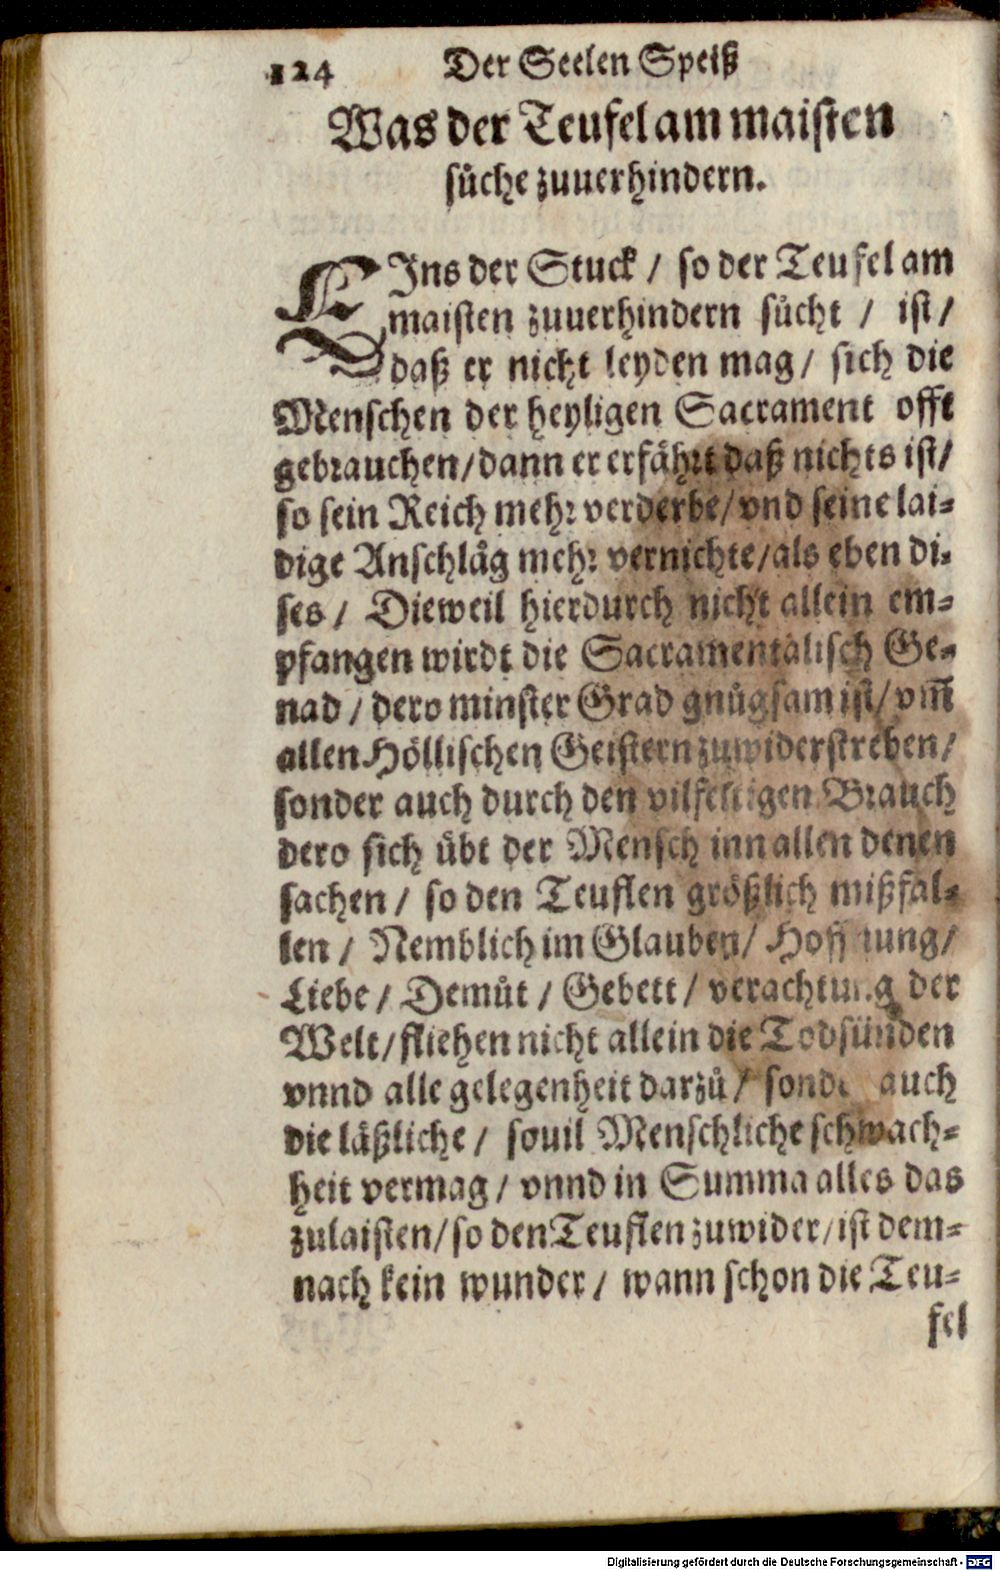 124 Der Seelen Speiß
Was der Teufel am maisten
sůche zuuerhindern.
EIns der Stuck / so der Teufel am
maisten zuuerhindern sůcht / ist /
daß er nicht leyden mag / sich die
Menschen der heyligen Sacrament offt
gebrauchen / dann er erfährt daß nichts ist /
so sein Reich mehr verderbe / vnd seine lai-
dige Anschlåg mehr vernichte / als eben di-
ses / Dieweil hierdurch nicht allein em-
pfangen wirdt die Sacramentalisch Ge-
nad / dero minster Grad gnůgsam ist / vm̃
allen Höllischen Geistern zuwiderstreben /
sonder auch durch den vilfeltigen Brauch
dero sich übt der Mensch inn allen denen
sachen / so den Teuflen größlich mißfal-
len / Nemblich im Glauben / Hoffnung /
Liebe / Demůt / Gebett / verachtung der
Welt / fliehen nicht allein die Todsünden
vnnd alle gelegenheit darzů / sonder auch
die läßliche / souil Menschliche schwach-
heit vermag / vnnd in Summa alles das
zulaisten / so den Teuflen zuwider / ist dem-
nach kein wunder / wann schon die Teu-
fel
Digitalisierung gefördert durch die Deutsche Forschungsgemeinschaft - DFG